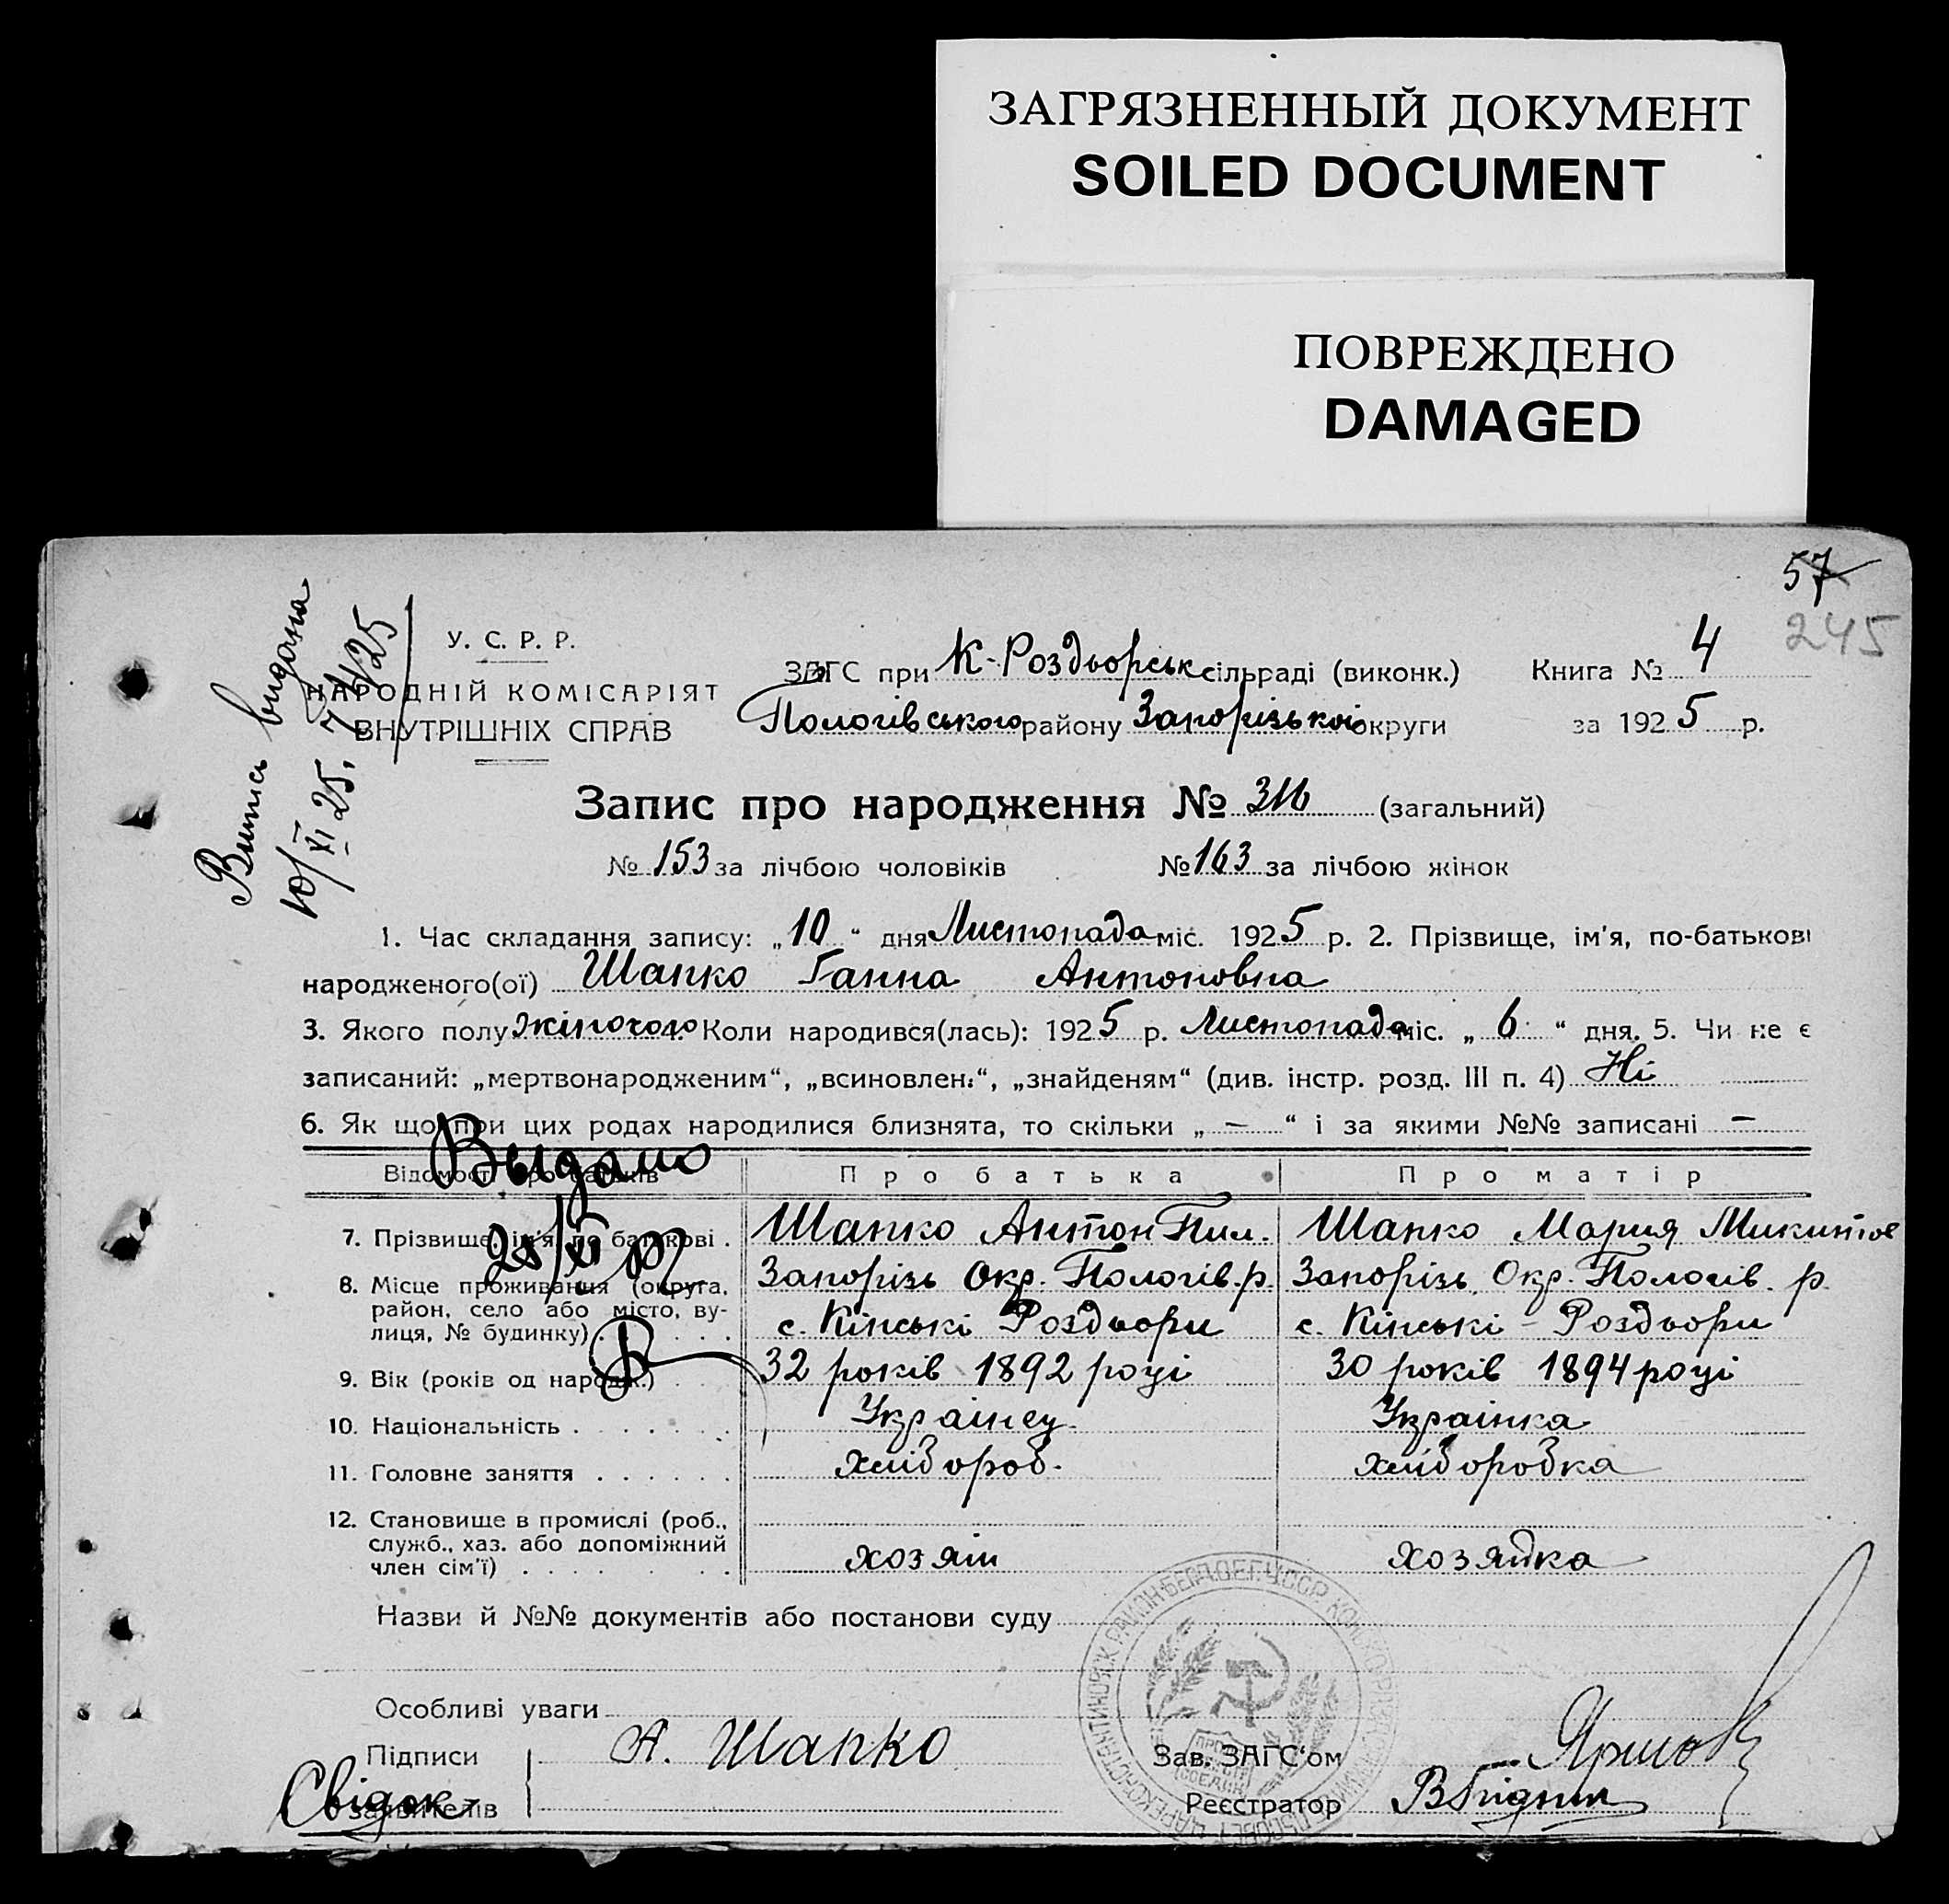 ЗАГРЯЗНЕННЫЙ ДОКУМЕНТ
SOILED DOCUMENT
ПОВРЕЖДЕНО
DAMAGED
57
245
Випись видана
10/XI 25.
У. С. Р. Р.
НАРОДНІЙ КОМІСАРІЯТ
ВНУТРІШНІХ СПРАВ
ЗАГС при К-Роздорськ сільраді (виконк.) Книга № 4
Пологівського району Запорізької округи за 1925 р.
Запис про народження № 316 (загальний)
№ 153 за лічбою чоловіків № 163 за лічбою жінок
1. Час складання запису: „10“ дня Листопада міс. 1925 р. 2. Прізвище, ім'я, по-батькові
народженого(ої) Шапко Ганна Антоновна
3. Якого полу жіночого Коли народився(лась): 1925 р. Листопада міс. „6“ дня. 5. Чи не є
записаний: „мертвонародженим“, „всиновлен.“, „знайденям“ (див. інстр. розд. III п. 4) Ні
6. Як що при цих родах народилися близнята, то скільки „—“ і за якими №№ записані —
Выдано
Відомості про батьків Про батька Про матір
7. Прізвище, ім'я, по батькові . Шапко Антон Пил. Шапко Мария Микитов
8. Місце проживання (округа, Запорізь Окр. Пологів. р. Запорізь. Окр. Пологів. р.
район, село або місто, ву-
лиця, № будинку) с. Кінські Роздори с. Кінські - Роздори
9. Вік (років од народж.) 32 років 1892 році 30 років 1894 році
10. Національність Українец. Українка
11. Головне заняття хлібороб. хліборобка
12. Становище в промислі (роб.,
служб., хаз. або допоміжний
член сім'ї) хозяін хозяйка
Назви й №№ документів або постанови суду
Особливі уваги
Підписи А. Шапко Зав. ЗАГС'ом
Свідок
заявителів Реєстратор